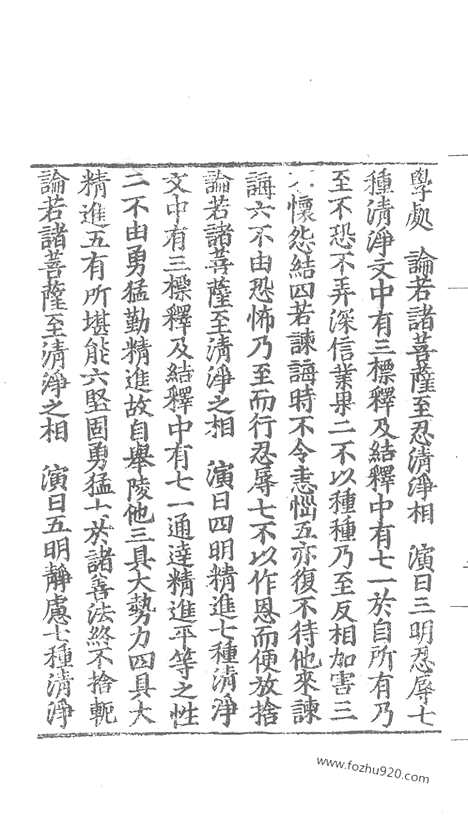 學處　論若諸菩薩至忍清淨相　演曰三明忍辱七
種清淨文中有三標釋及結釋中有七一於自所有乃
至不恐不弄深信業果二不以種種乃至反相加害三
不懷怨結四若諫誨時不令恚惱五亦復不待他來諫
誨六不由恐怖乃至而行忍辱七不以作恩而便放捨
論若諸菩薩至清淨之相　演曰四明精進七種清淨
文中有三標釋及結釋中有七一通達精進平等之性
二不由勇猛勤精進故自舉陵他三具大勢力四具大
精進五有所堪能六堅固勇猛七於諸善法終不捨軛
論若諸菩薩至清淨之相　演曰五明靜慮七種清淨
www.fozhu920.com